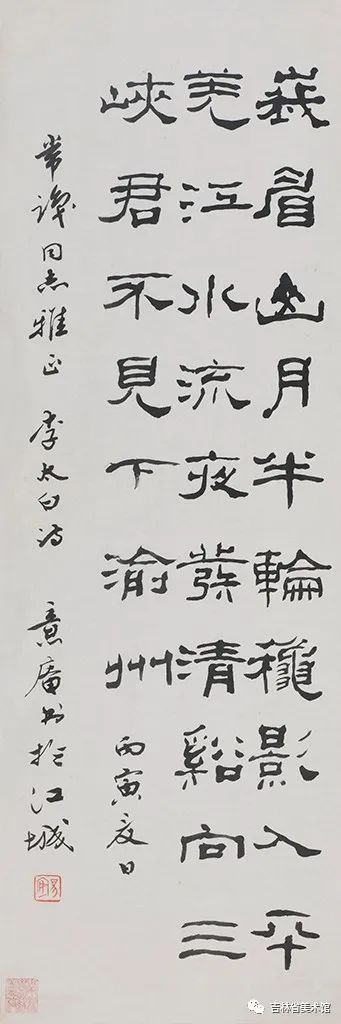 峩眉山月半輪龝影入平
羌江水流夜發清谿向三
峽君不見下渝州 丙寅夏日
同志雅正 李太白詩 意庵书於江城
吉林省美术馆